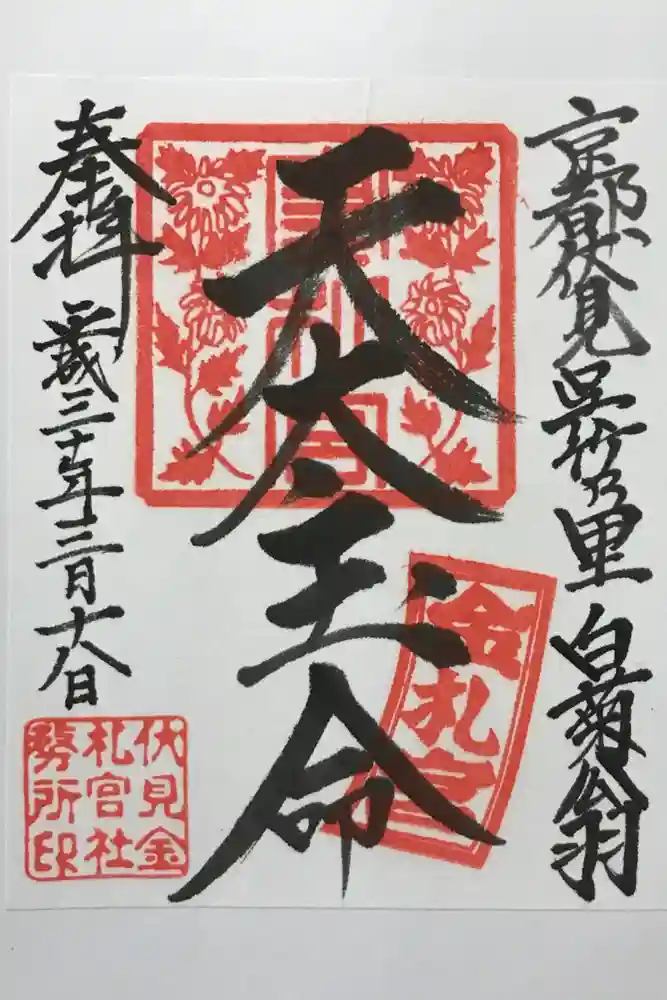 京都伏見 呉竹乃里 白菊翁
天太玉命
奉拝 平成三十年三月十八日
金札宮
金札宮
伏見金
札宮社
務所印